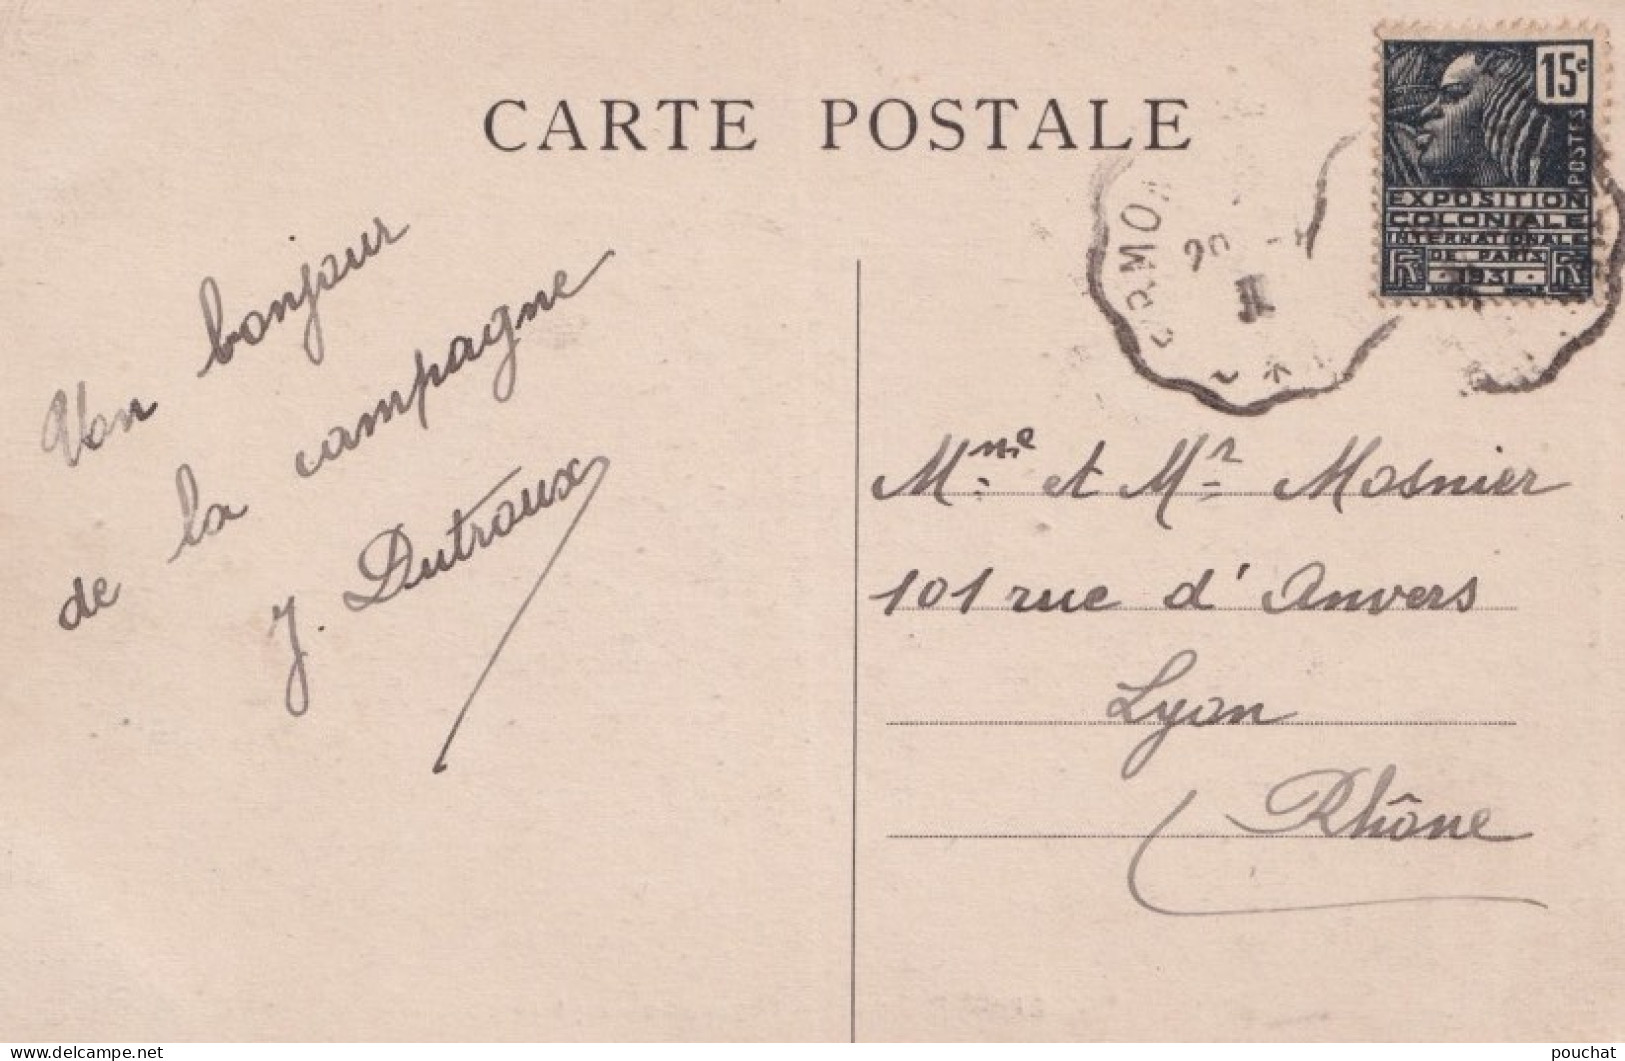 CARTE POSTALE
15c
POSTES
EXPOSITION
COLONIALE
INTERNATIONALE
DE PARIS
RF 1931 RF
20
Un bonjour
de la campagne
J. Dutroux
Mme et Mr Mosnier
101 rue d'Anvers
Lyon
Rhône
delcampe.net
pouchat